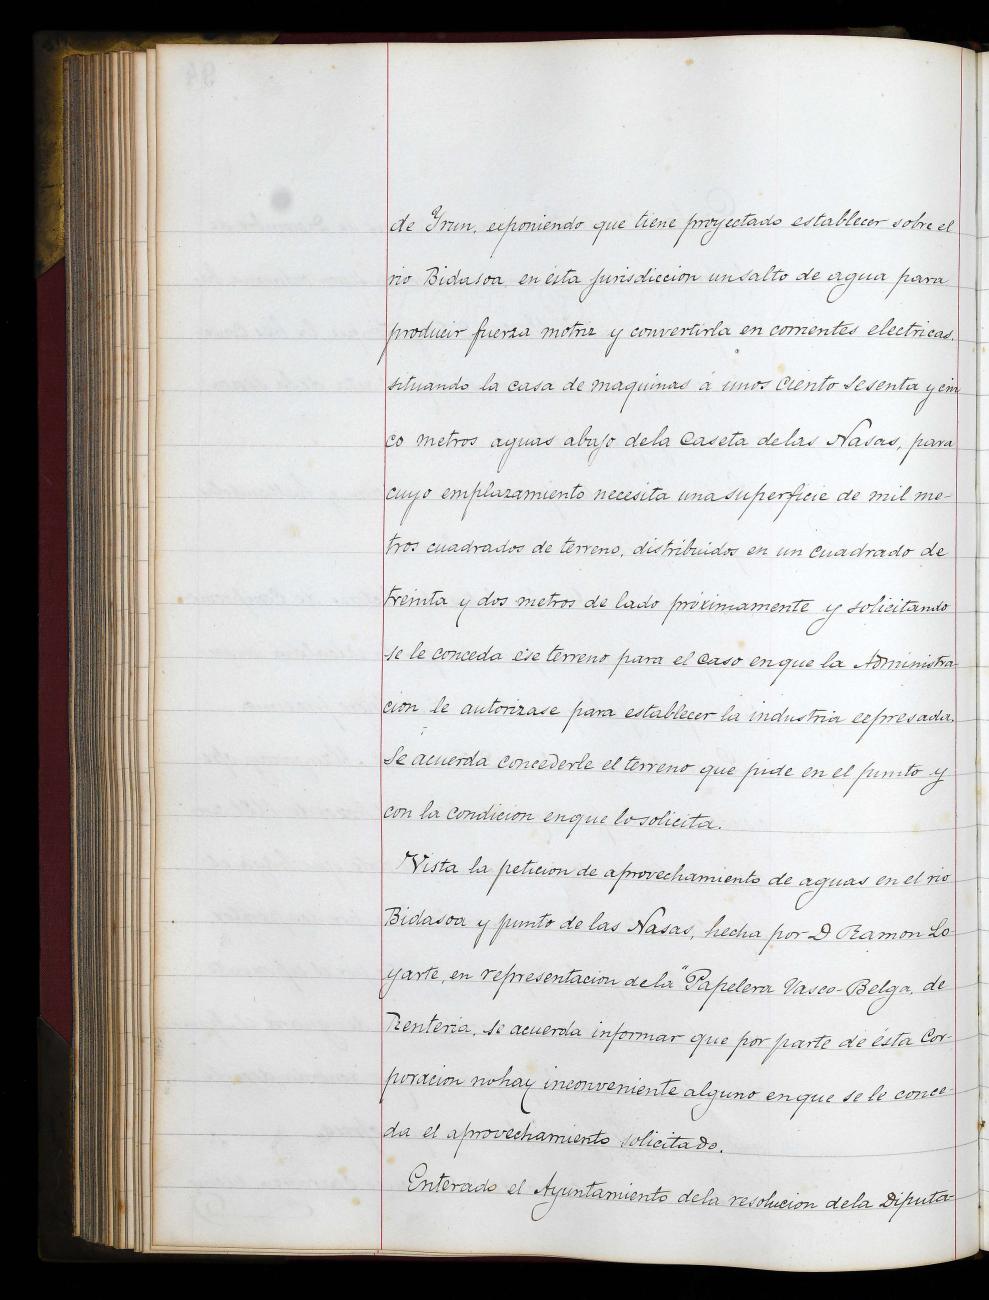 de Yrun, exponiendo que tiene proyectado establecer sobre el
rio Bidasoa, en ésta jurisdiccion un salto de agua para
producir fuerza motriz y convertirla en corrientes electricas,
situando la casa de maquinas á unos ciento sesenta y cin
co metros aguas abajo de la Caseta de las Nasas, para
cuyo emplazamiento necesita una superficie de mil me-
tros cuadrados de terreno, distribuidos en un cuadrado de
treinta y dos metros de lado próximamente y solicitando
se le conceda ese terreno para el caso en que la Administra-
cion le autorizase para establecer la industria expresada.
Se acuerda concederle el terreno que pide en el punto y
con la condicion en que lo solicita.
Vista la peticion de aprovechamiento de aguas en el rio
Bidasoa y punto de las Nasas, hecha por D Ramon Lo
yarte, en representacion de la "Papelera Vasco-Belga, de
Renteria, se acuerda informar que por parte de ésta Cor-
poracion no hay inconveniente alguno en que se le conce-
da el aprovechamiento solicitado.
Enterado el Ayuntamiento de la resolucion de la Diputa-